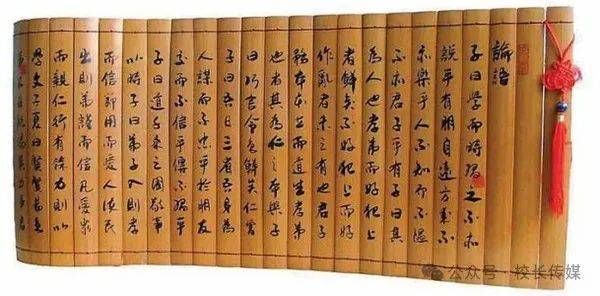 論語
子曰學而時習之不亦
說乎有朋自遠方來不
亦樂乎人不知而不慍
不亦君子乎有子曰其
為人也孝弟而好犯上
者鮮矣不好犯上而好
作亂者未之有也君子
務本本立而道生孝弟
也者其為仁之本與子
曰巧言令色鮮矣仁曾
子曰吾日三省吾身為
人謀而不忠乎於朋友
交而不信乎傳不習乎
子曰道千乘之國敬事
以時子曰弟子入則孝
而信節用而愛人使民
出則弟謹而信凡愛眾
而親仁行有餘力則以
學文子夏曰賢賢易色
力事君
公众号·校长传媒